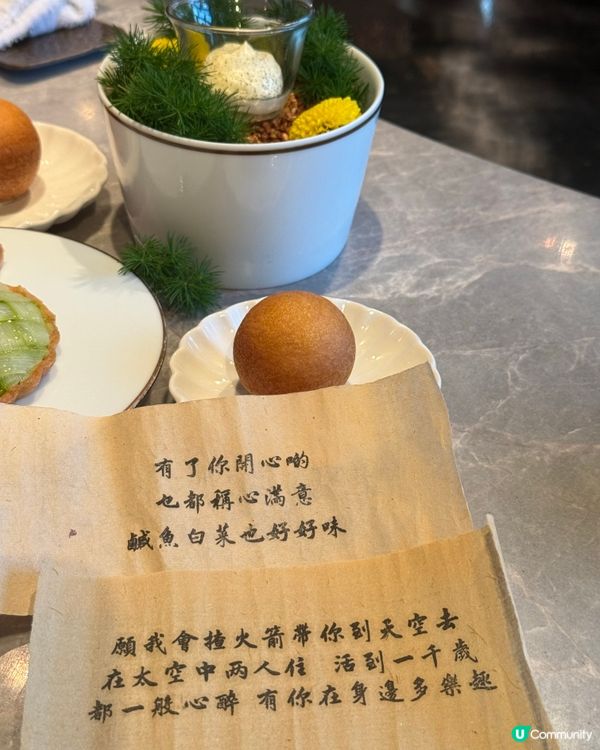 有了你開心啲
乜都稱心滿意
鹹魚白菜也好好味
願我會揸火箭帶你到天空去
在太空中兩人住 活到一千歲
都一般心醉 有你在身邊多樂趣
U Community